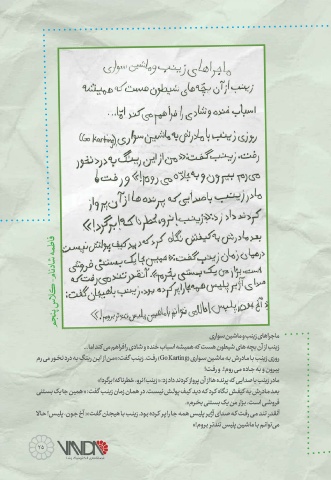 ماجراهای زینب و ماشین سواری
زینب از آن بچه های شیطون هست که همیشه
اسباب خنده و شادی را فراهم می کند اما...
روزی زینب با مادرش به ماشین سواری (Go Karting)
رفت، زینب گفت: «من از این رینگ به درد نخور
می رم بیرون و به جاده می روم!» و رفت!
مادر زینب با صدایی که پرنده ها از آن پرواز
کردند داد زد: «زینب! نرو، خطرناکه! برگرد!»
بعد مادرش به کیفش نگاه کرد که دید کیف پولش نیست
در همان زمان زینب گفت: «همین جا یک بستنی فروشی
است، بزار من یک بستنی بخرم». آنقدر تند می رفت که
صدای آژیر پلیس همه جا را پر کرده بود، زینب با هیجان گفت:
«آخ جون، پلیس! حالا می توانم با ماشین پلیس تندتر بروم!»
فاطمه شادنام، کلاس پنجم
ماجراهای زینب و ماشین سواری
زینب از آن بچه های شیطون هست که همیشه اسباب خنده و شادی را فراهم می کند اما...
روزی زینب با مادرش به ماشین سواری (Go Karting) رفت. زینب گفت: «من از این رینگ به درد نخور می رم
بیرون و به جاده می روم!» و رفت!
مادر زینب با صدایی که پرنده ها از آن پرواز کردند داد زد: «زینب! نرو، خطرناکه! برگرد!»
بعد مادرش به کیفش نگاه کرد که دید کیف پولش نیست. در همان زمان زینب گفت: «همین جا یک بستنی
فروشی است، بزار من یک بستنی بخرم.»
آنقدر تند می رفت که صدای آژیر پلیس همه جا را پر کرده بود. زینب با هیجان گفت: «آخ جون، پلیس! حالا
می توانم با ماشین پلیس تندتر بروم!»
VANDA
۲۵